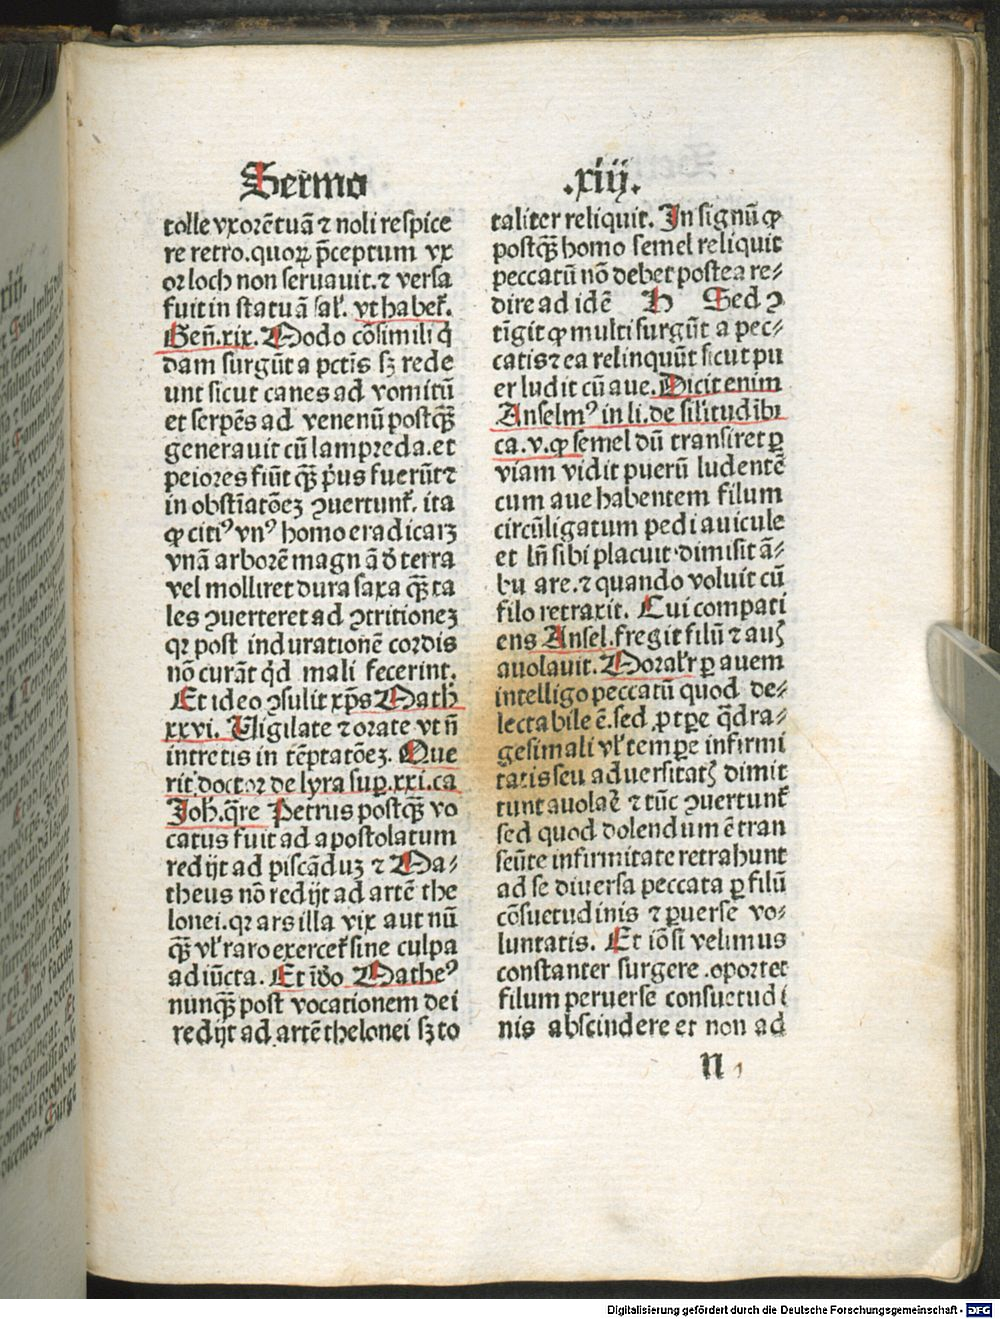 Sermo .xiij.
tolle vxorē tuā ⁊ noli respice
re retro. quoꝝ p̄ceptum vx
or loch non seruauit. ⁊ versa
fuit in statuā sal̕. vt habet̕.
Gen̄. xix. Modo cōsimili q̄
dam surgūt a pctīs sꝫ rede
unt sicut canes ad vomitū
et serpēs ad venenū postqꝫ̄
generauit cū lampreda. et
peiores fiūt qꝫ̄ pͥus fuerūt ⁊
in obstīatōeꝫ ꝯuertunt̕. ita
ꝙ citiꝰ vnꝰ homo eradicarꝫ
vnā arborē magnā d̄ terra
vel molliret dura saxa qꝫ̄ ta
les ꝯuerteret ad ꝯtritioneꝫ
qꝛ post indurationē cordis
nō curāt qͥd mali fecerint.
Et ideo ꝯsulit xp̄s Math̄
xxvi. Uigilate ⁊ orate vt n̄
intretis in tēptatōeꝫ. Que
rit doctor de lyra suꝑ. xxi. ca
Joh̄. q̄re Petrus postqꝫ̄ vo
catus fuit ad apostolatum
redijt ad piscāduꝫ ⁊ Ma⸗
theus nō redijt ad artē the
lonei. qꝛ ars illa vix aut nū
qꝫ̄ vl̕ raro exercet̕ sine culpa
adiūcta. Et iō̄o Matheꝰ
nunqꝫ̄ post vocationem dei
redijt ad artē thelonei sꝫ to
taliter reliquit. In signū ꝙ
postqꝫ̄ homo semel reliquit
peccatū nō debet postea re⸗
dire ad idē H Sed ꝯ
tīgit ꝙ multi surgūt a pec⸗
catis ⁊ ea relinquūt sicut pu
er ludit cū aue. Dicit enim
Anselmꝰ in li. de sil̕itudībꝫ
ca. v. ꝙ semel dū transiret ꝑ
viam vidit puerū ludentē
cum aue habentem filum
circūligatum pedi auicule
et cū sibi placuit dimisit ā⸗
bu are. ⁊ quando voluit cū
filo retraxit. Cui compati
ens Ansel. fregit filū ⁊ auis
auolauit. Moral̕r ꝑ auem
intelligo peccatū quod de⸗
lectabile ē. sed ꝓ tꝑe q̄dra⸗
gesimali vl̕ tempore infirmi
tatis seu aduersitatꝭ dimit
tunt auolare ⁊ tūc ꝯuertunt̕
sed quod dolendum ē tran
seūte infirmitate retrahunt
ad se diuersa peccata ꝑ filū
cōsuetudinis ⁊ ꝑuerse vo⸗
luntatis. Et iō si velimus
constanter surgere. oportet
filum peruerse consuetudi
nis abscindere et non ad
N
Digitalisierung gefördert durch die Deutsche Forschungsgemeinschaft - DFG